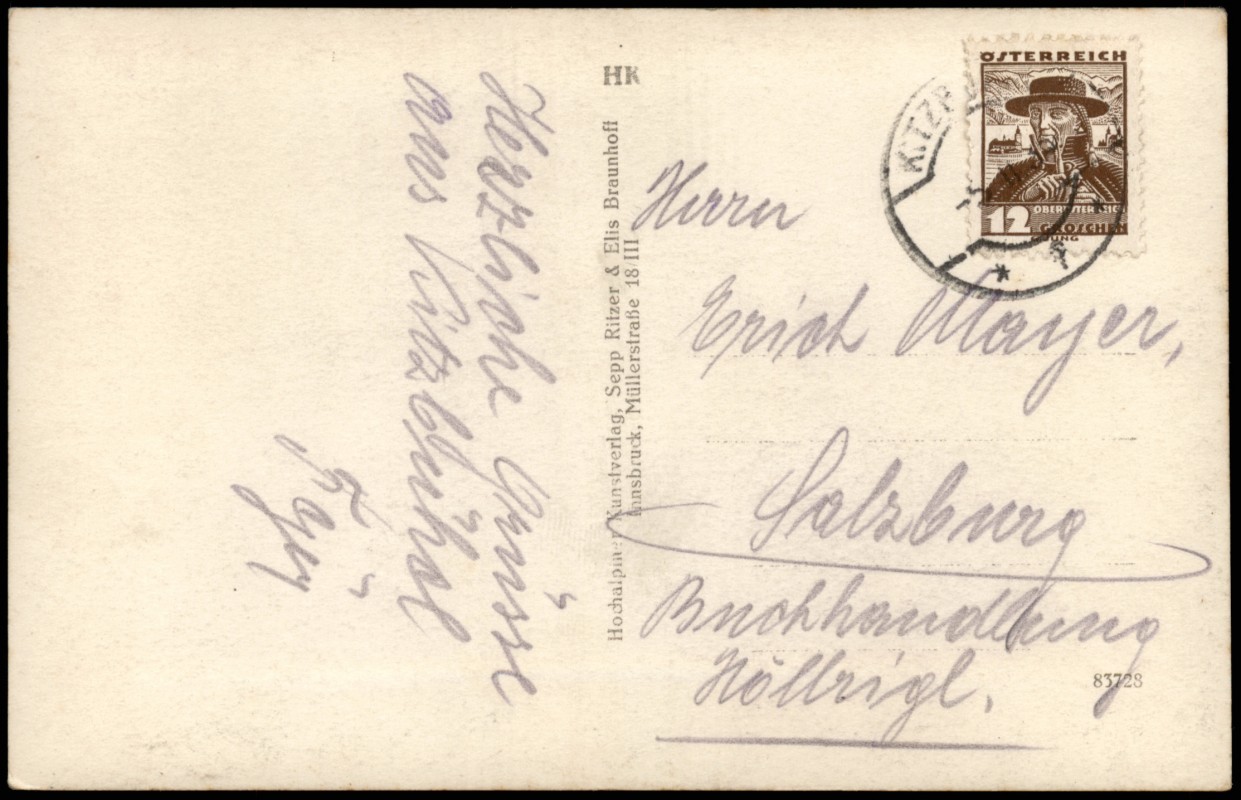 Herzliche Grüsse
aus Kitzbühel
HK
Hochalpiner Kunstverlag, Sepp Ritzer & Elis Braunhoff
Innsbruck, Müllerstraße 18/III
ÖSTERREICH
12
OBERÖSTERREICH
GROSCHEN
KITZB
Herrn
Erich Mayer,
Salzburg
Buchhandlung
Höllrigl.
83728